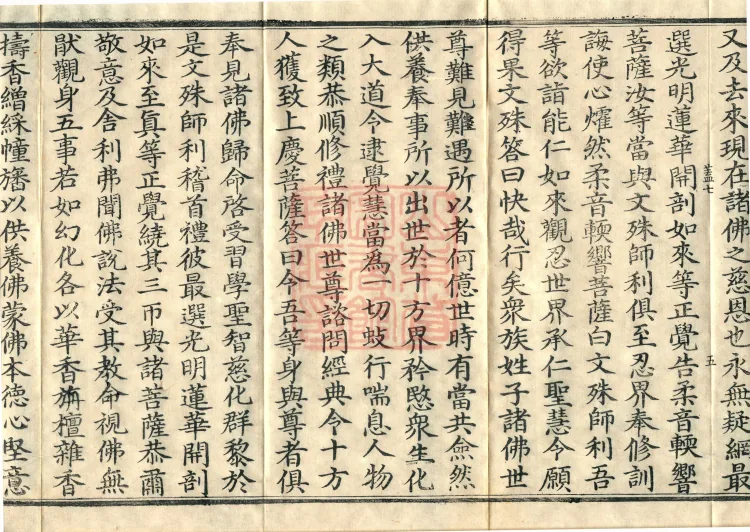 又及去來現在諸佛之慈恩也永無疑網最
選光明蓮華開剖如來等正覺告柔音軟響
菩薩汝等當與文殊師利俱至忍界奉修訓
誨使心燿然柔音軟響菩薩白文殊師利吾
等欲詣能仁如來觀忍世界承仁聖慧令願
得果文殊答曰快哉行矣衆族姓子諸佛世
尊難見難遇所以者何億世時有當共僉然
供養奉事所以出世於十方界矜愍衆生化
入大道令逮覺慧當為一切蚑行喘息人物
之類恭順修禮諸佛世尊諮問經典令十方
人獲致上慶菩薩答曰今吾等身與尊者俱
奉見諸佛歸命啓受習學聖智慈化群黎於
是文殊師利稽首禮彼最選光明蓮華開剖
如來至真等正覺繞其三帀與諸菩薩恭肅
敬意及舍利弗聞佛說法受其教命視佛無
猒觀身五事若如幻化各以華香旃檀雜香
擣香繒綵幢旛以供養佛蒙佛本德心堅意